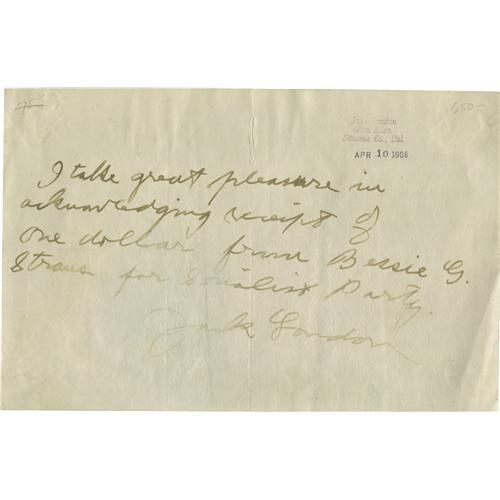 75-
650-
Jack London
Glen Ellen
Sonoma Co., Cal.
APR 10 1906
I take great pleasure in
acknowledging receipt of
one dollar from Bessie G.
Straus for Socialist Party.
Jack London